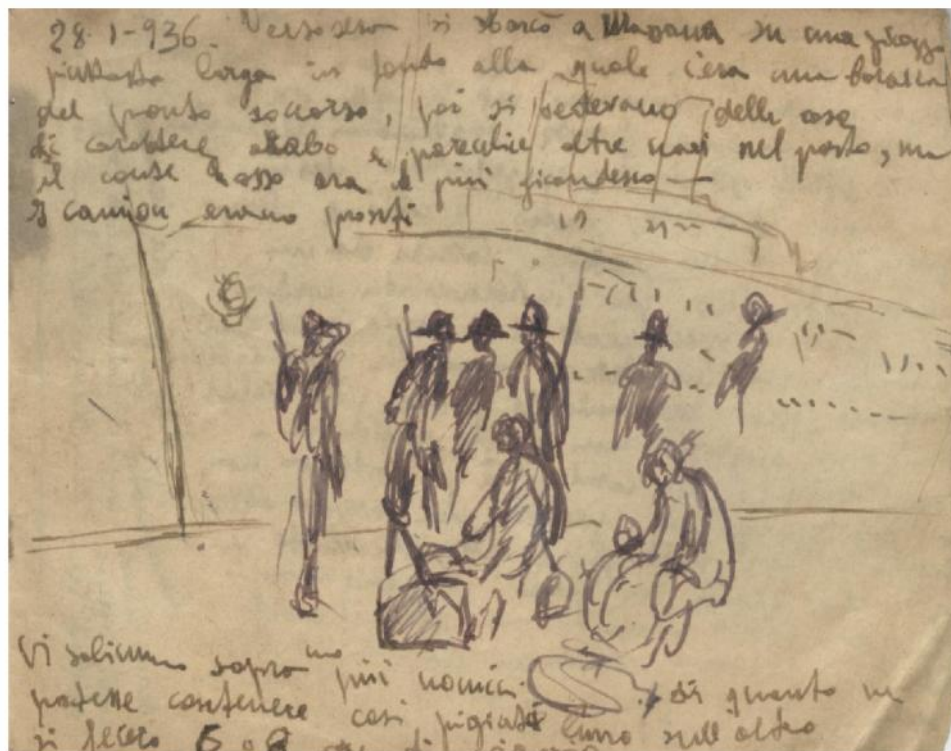 28·1-936. Verso sera si sbarcò a Massaua su una piazza
piuttosto larga in fondo alla quale c'era una baracca
del pronto soccorso, poi si vedevano delle case
di carattere arabo e parecchie altre navi nel porto, ma
il conte rosso era il più gigantesco —
I camion erano pronti
Vi salimmo sopra più uomini di quanto ne
potesse contenere così pigiati l'uno sull'altro
si fecero 5 o 6